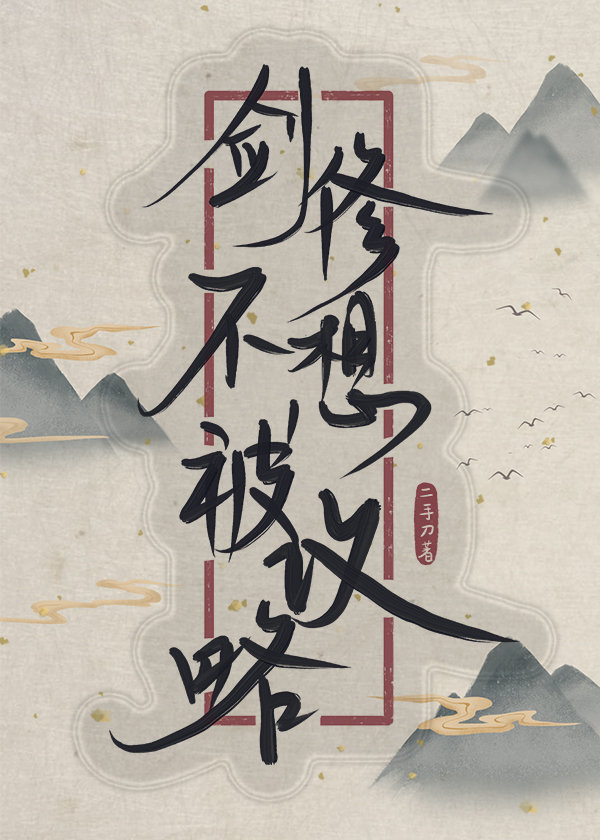 剑修
不想
被攻
略
二手刀著